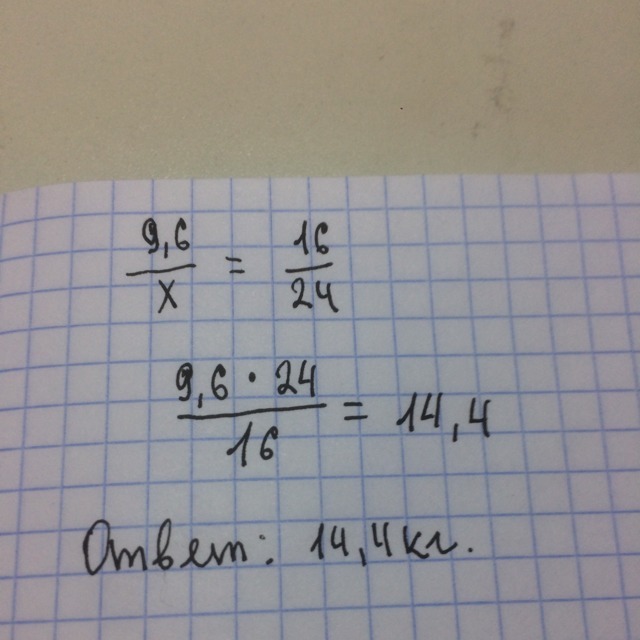 9,6/x = 16/24
9,6 · 24/16 = 14,4
Ответ: 14,4 кг.